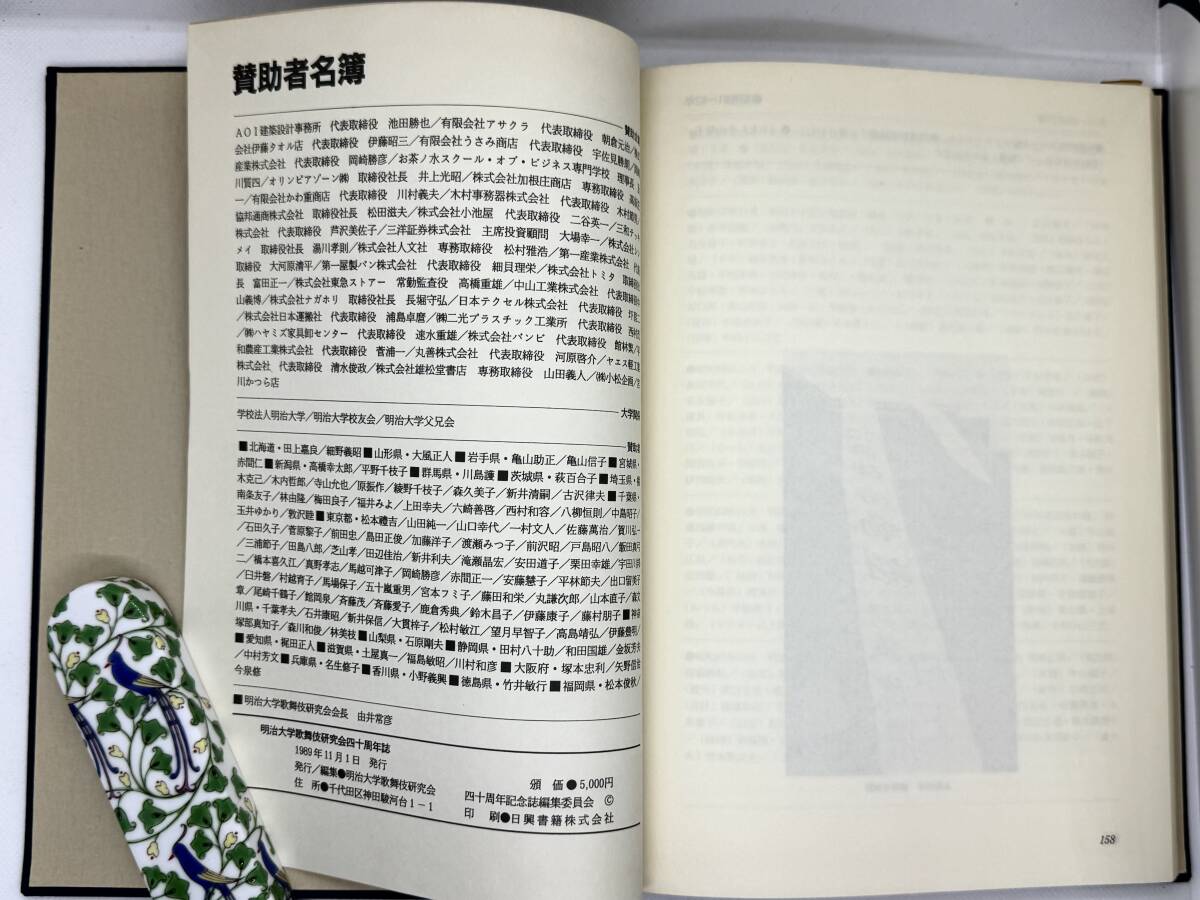 賛助者名簿
AOI建築設計事務所 代表取締役 池田勝也／有限会社アサクラ 代表取締役 朝倉元治／
会社伊藤タオル店 代表取締役 伊藤昭三／有限会社うさみ商店 代表取締役 宇佐見勝郎／
産業株式会社 代表取締役 岡崎勝彦／お茶ノ水スクール・オブ・ビジネス専門学校 理事長
川賢四／オリンピアゾーン㈱ 取締役社長 井上光昭／株式会社加根庄商店 専務取締役
一／有限会社かわ重商店 代表取締役 川村義夫／木村事務器株式会社 代表取締役 木村
協邦通商株式会社 取締役社長 松田滋夫／株式会社小池屋 代表取締役 二谷英一／三和
株式会社 代表取締役 芦沢美佐子／三洋証券株式会社 主席投資顧問 大場幸一／株式会社
メイ 取締役社長 湯川孝則／株式会社人文社 専務取締役 松村雅浩／第一産業株式会社 代表
取締役 大河原清平／第一屋製パン株式会社 代表取締役 細貝理栄／株式会社トミタ 取締役
長 富田正一／株式会社東急ストアー 常勤監査役 高橋重雄／中山工業株式会社 代表取締役
山義博／株式会社ナガホリ 取締役社長 長堀守弘／日本テクセル株式会社 代表取締役
／株式会社日本運搬社 代表取締役 浦島卓麿／㈱二光プラスチック工業所 代表取締役
／㈱ハヤミズ家具卸センター 代表取締役 速水重雄／株式会社バンビ 代表取締役 館林繁／
和農産工業株式会社 代表取締役 菅浦一／丸善株式会社 代表取締役 河原啓介／ヤエス軽工業
株式会社 代表取締役 清水俊政／株式会社雄松堂書店 専務取締役 山田義人／㈱小松企画／
川かつら店
大学関
学校法人明治大学／明治大学校友会／明治大学父兄会
賛助
■北海道・田上嘉良／細野義昭■山形県・大風正人■岩手県・亀山助正／亀山信子■宮城県・
赤間仁■新潟県・高橋幸太郎／平野千枝子■群馬県・川島護■茨城県・萩百合子■埼玉県・
木克己／木内哲郎／寺山允也／原振作／綾野千枝子／森久美子／新井清嗣／古沢律夫■千葉県・
南条友子／林由隆／梅田良子／福井みよ／上田幸夫／六崎善啓／西村和容／八柳恒則／中島昭子／
玉井ゆかり／敦沢睦■東京都・松本禮吉／山田純一／山口幸代／一村文人／佐藤萬治／賀川弘一
／石田久子／菅原黎子／前田忠／島田正俊／加藤洋子／渡瀬みつ子／前沢昭／戸島昭八／飯田
／三浦節子／田島八郎／芝山孝／田辺佳治／新井利夫／滝瀬晶宏／安田道子／栗田幸雄／宇田川
二／橋本喜久江／真野孝志／馬越可津子／岡崎勝彦／赤間正一／安藤慧子／平林節夫／出口留美子
／臼井磐／村越育子／馬場保子／五十嵐重男／宮本フミ子／藤田和栄／丸謙次郎／山本直子／森文
章／尾崎千鶴子／館岡泉／斉藤茂／斉藤愛子／鹿倉秀典／鈴木昌子／伊藤康子／藤村朋子■神奈
川県・千葉孝夫／石井康昭／新井保信／大貫梓子／松村敏江／望月早智子／高島靖弘／伊藤豊明／
塚部真知子／森川和俊／林美枝■山梨県・石原剛夫■静岡県・田村八十助／和田国雄／金坂芳夫
■愛知県・梶田正人■滋賀県・土屋真一／福島敏昭／川村和彦■大阪府・塚本忠利／矢野信
／中村芳文■兵庫県・名生修子■香川県・小野義興■徳島県・竹井敏行■福岡県・松本俊秋／
今泉修
■明治大学歌舞伎研究会会長 由井常彦
明治大学歌舞伎研究会四十周年誌
1989年11月1日 発行
発行／編集●明治大学歌舞伎研究会
住 所●千代田区神田駿河台1−1
頒 価●5,000円
四十周年記念誌編集委員会 ©
印 刷●日興書籍株式会社
158